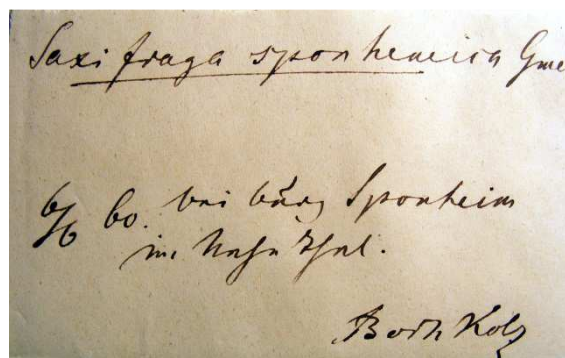 Saxifraga sponhemica Gme
6/6 60. bei Burg Sponheim
im Nahe Thal.